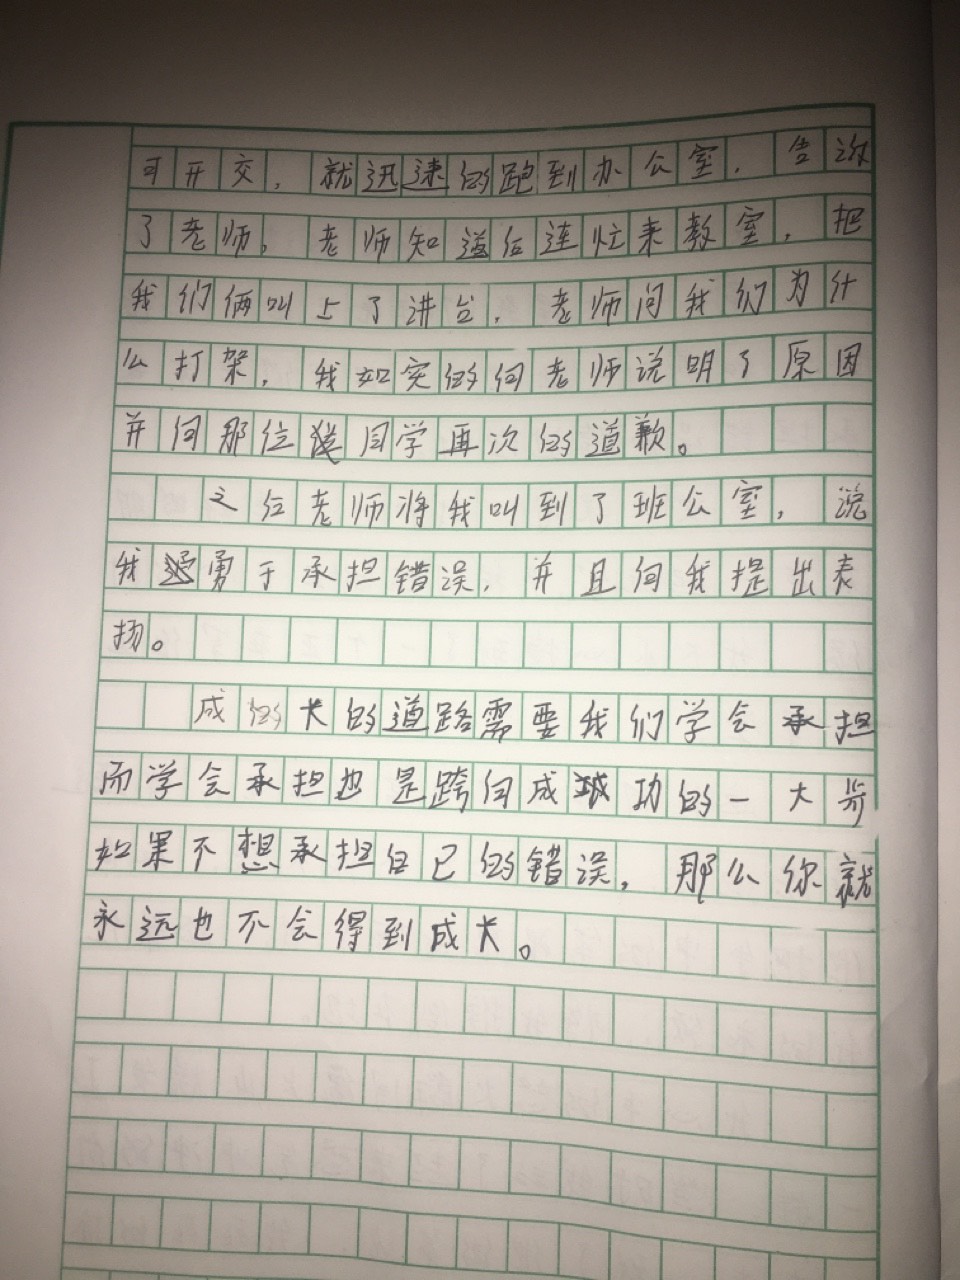 可开交，就迅速的跑到办公室，告诉
了老师，老师知道后连忙来教室，把
我们俩叫上了讲台，老师问我们为什
么打架，我如实的向老师说明了原因
并向那位同学再次的道歉。
之后老师将我叫到了班公室，说
我勇于承担错误，并且向我提出表
扬。
成长的道路需要我们学会承担
而学会承担也是跨向成功的一大步
如果不想承担自己的错误，那么你就
永远也不会得到成长。